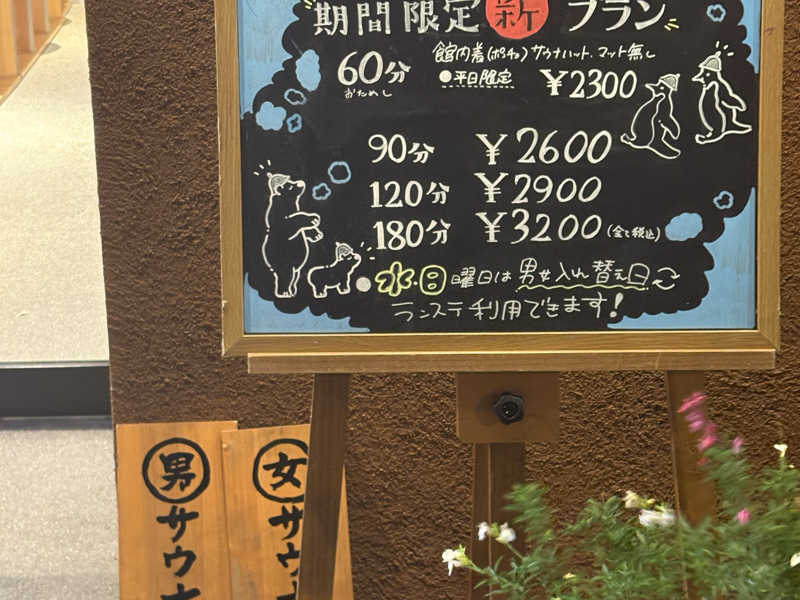 期間限定 新 プラン
館内着(ポンチョ)サウナハット、マット無し
60分 ●平日限定 ￥2300
おためし
90分 ￥2600
120分 ￥2900
180分 ￥3200 (全て税込)
●水・日曜日は男女入れ替え日
ランステ利用できます!
男 サウナ
女 サウナ